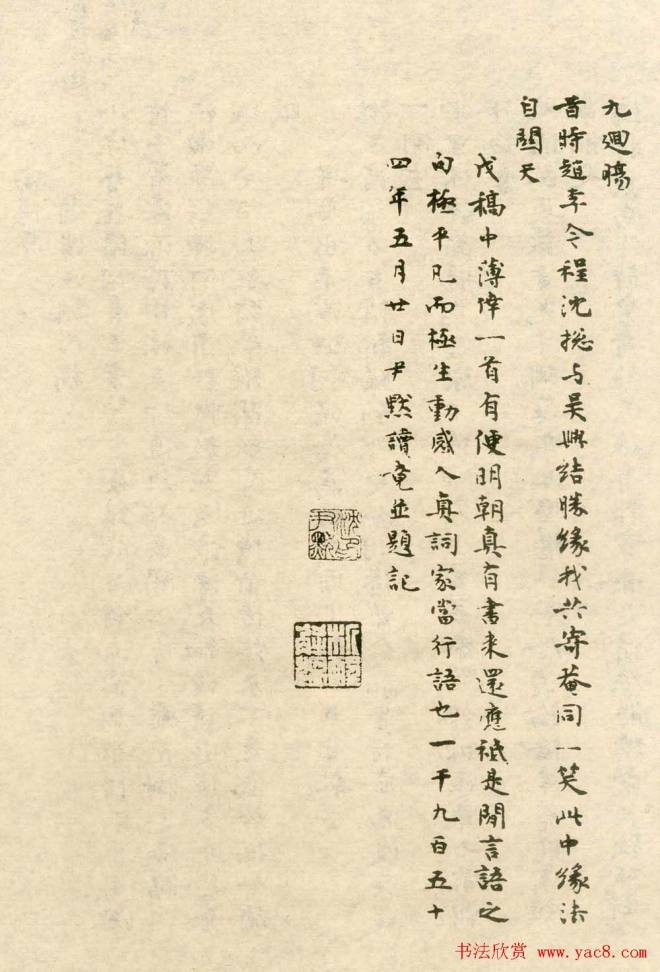 九廻腸
昔時趙李今程沈揔与吴興結勝緣我共寄菴同一笑此中緣法
自關天
戊稿中薄倖一首有便明朝真有書来還應祇是閒言語之
句極平凡而極生動感人真詞家當行語也一千九百五十
四年五月廿日尹默讀竟並題記
书法欣赏 www.yac8.com